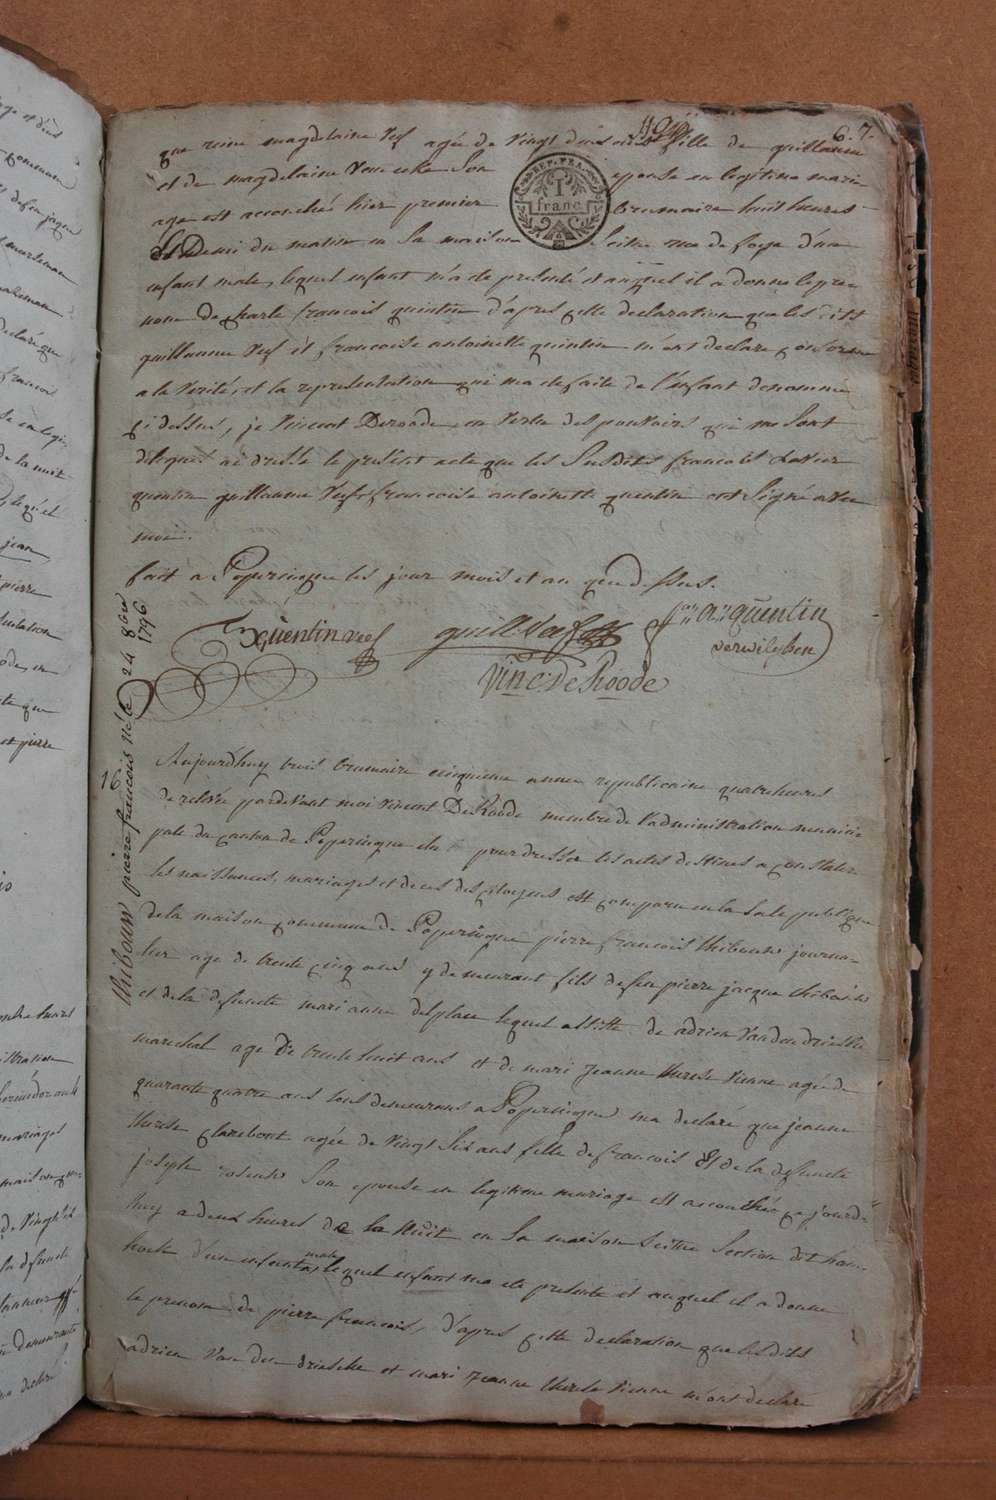 6. 7.
que reine magdelaine Vef agée de vingt dús ans fille de guillaume
et de magdelaine Son epouse en legitime maria
REP. FRA.
1
franc
age est accouchée hier premier brumaire huit heures
et Demi du matin en Sa maison Scitue rue de d'un
enfant male, lequel enfant m'a ete presenté et auquel il a donné le pre
nom de charle francois quintin d'apres cette declaration que les dits
guillaume Vef et francoise antoinette quintin m'ont declaré conforme
a la verité, et la representation qui ma ete faite de l'enfant denommé
ci dessus, je Vincent Deroode en vertu des pouvoirs qui me Sont
delegués ai dressé le present acte que les Susdits francois Xavier
quentin guillaume Vef, francoise antoinette quentin ont Signé avec
moi.
fait a Poperingue les jour mois et an que dessus.
quentin
guill. Vef
an: quentin
verwilghen
Vinc: De Roode
16.
thibouw pierre francois né le 24 8bre
1796
Aujourdhuy trois brumaire cinquieme année republicaine quatre heures
de relevée pardevant moi Vincent DeRoode membre de l'administration munici
pale du canton de Poperingue elu pour dresser les actes destinés a constater
les naissances, mariages et deces des citoyens est comparu en la Sale publique
de la maison commune de Poperingue pierre francois thibouw journa-
lier agé de trente cinq ans y demeurant fils de feu pierre jacque thibouw
et de la defuncte marianne delplace lequel assisté de adrien Vanden driessche
marechal agé de trente huit ans et de mari jeanne therese Vienne agée de
quarante quatre ans tous demeurans a Poperingue ma declaré que jeanne
therese clarebout agée de vingt Six ans fille de francois Et de la defuncte
joseph Son epouse en legitime mariage est accouchée ce jourd'
huy a deux heures de la Nuit en Sa maison Scitue Section dit ham
hoek d'un enfant male, lequel enfant ma ete presenté et auquel il a donné
le prenom de pierre francois, d'apres cette declaration que lesdits
adrien Van den driesche et mari jeanne therese Vienne m'ont declaré